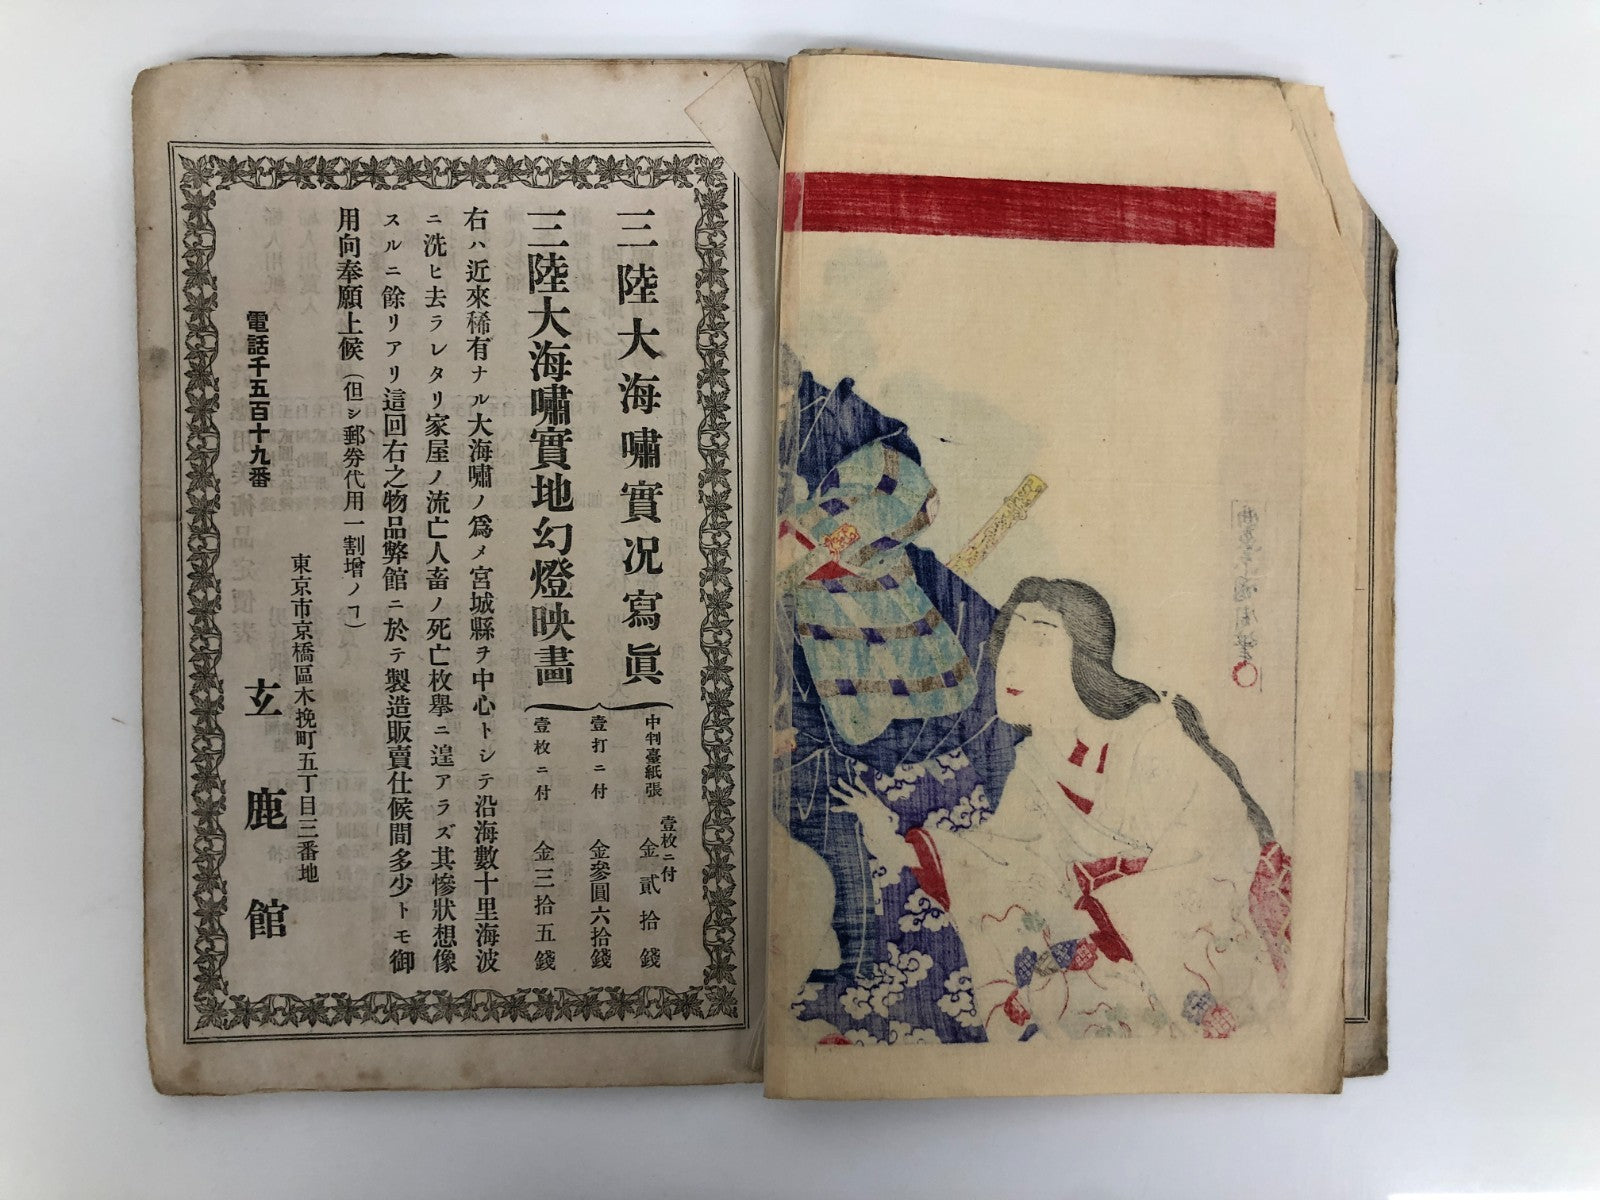 三陸大海嘯實况寫眞
三陸大海嘯實地幻燈映畵
中判臺紙張 壹枚ニ付 金貳拾錢
壹打ニ付 金參圓六拾錢
壹枚ニ付 金三拾五錢
右ハ近來稀有ナル大海嘯ノ爲メ宮城縣ヲ中心トシテ沿海數十里海波
ニ洗ヒ去ラレタリ家屋ノ流亡人畜ノ死亡枚擧ニ遑アラズ其慘狀想像
スルニ餘リアリ這回右之物品弊館ニ於テ製造販賣仕候間多少トモ御
用向奉願上候(但シ郵券代用一割增ノヿ)
東京市京橋區木挽町五丁目三番地
電話千五百十九番
玄鹿館